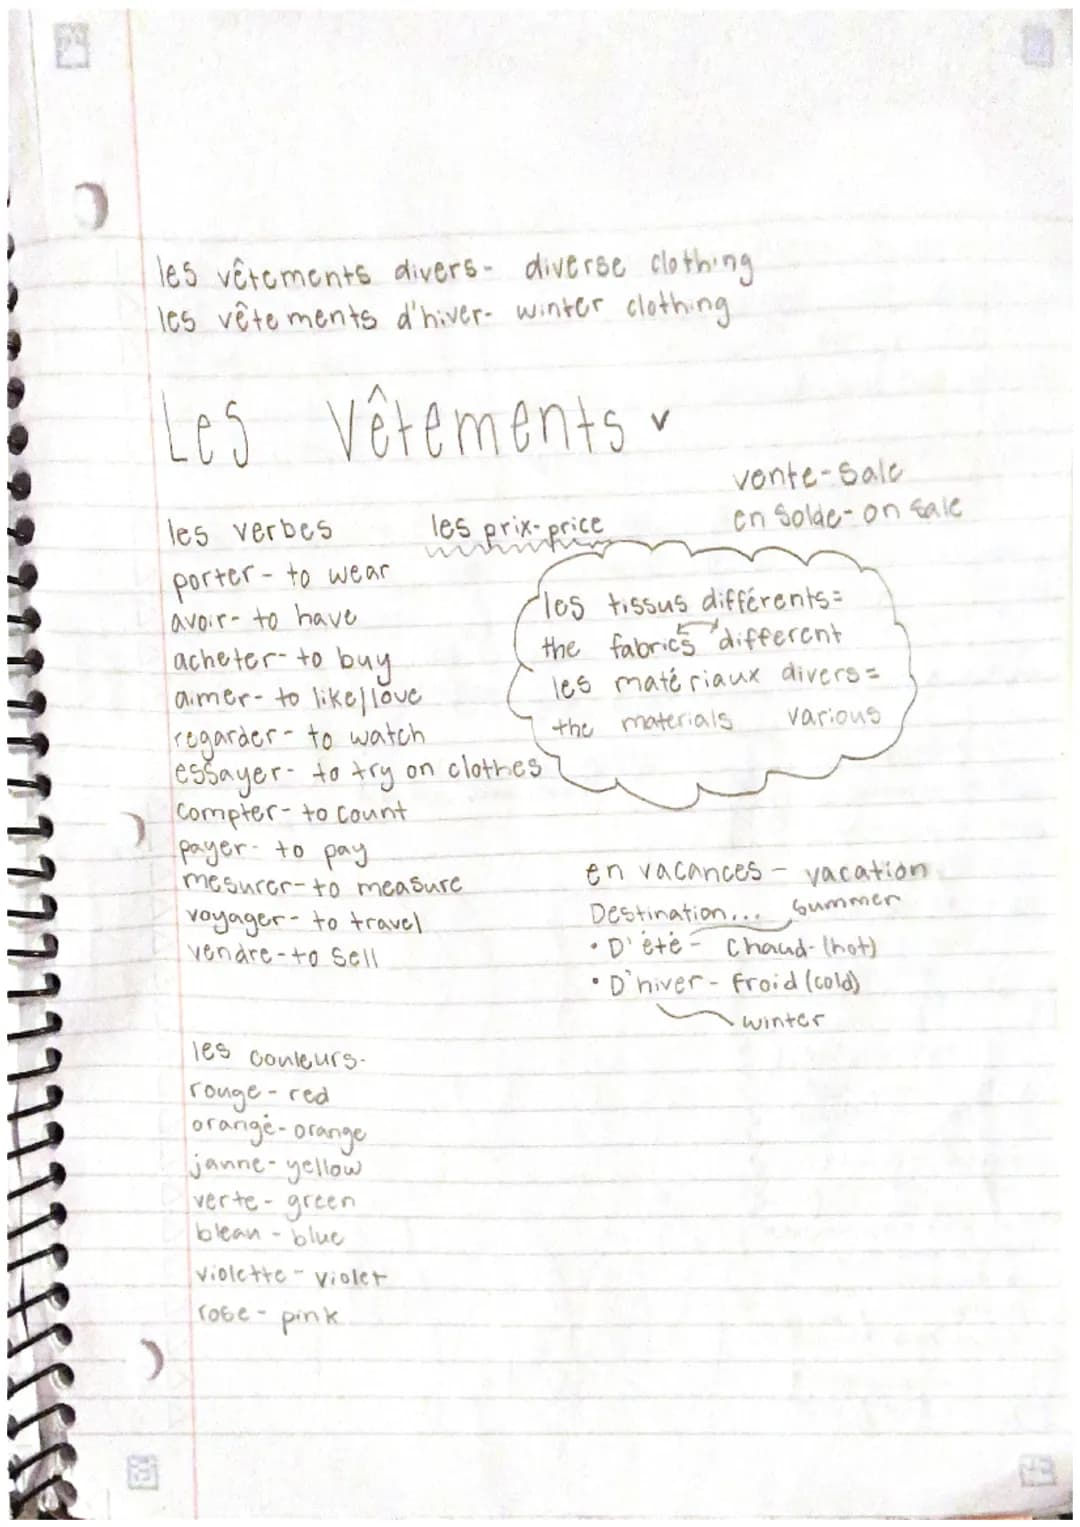 les vêtements divers- diverse clothing
les vêtements d'hiver- winter clothing
Les Vêtements
vente-Sale
en Solde-on sale
les verbes
les prix-price
porter- to wear
avoir- to have
acheter- to buy
aimer- to like/love
regarder- to watch
essayer- to try on clothes
compter- to count
payer- to pay
mesurer-to measure
voyager- to travel
vendre-to sell
les tissus différents=
the fabrics different
les matériaux divers=
the materials various
en vacances - vacation
Destination... Summer
• D'été- Chaud-(hot)
• D'hiver- froid (cold)
winter
les couleurs-
rouge- red
orangé-orange
janne-yellow
verte- green
blean - blue
violette- violet
rose- pink